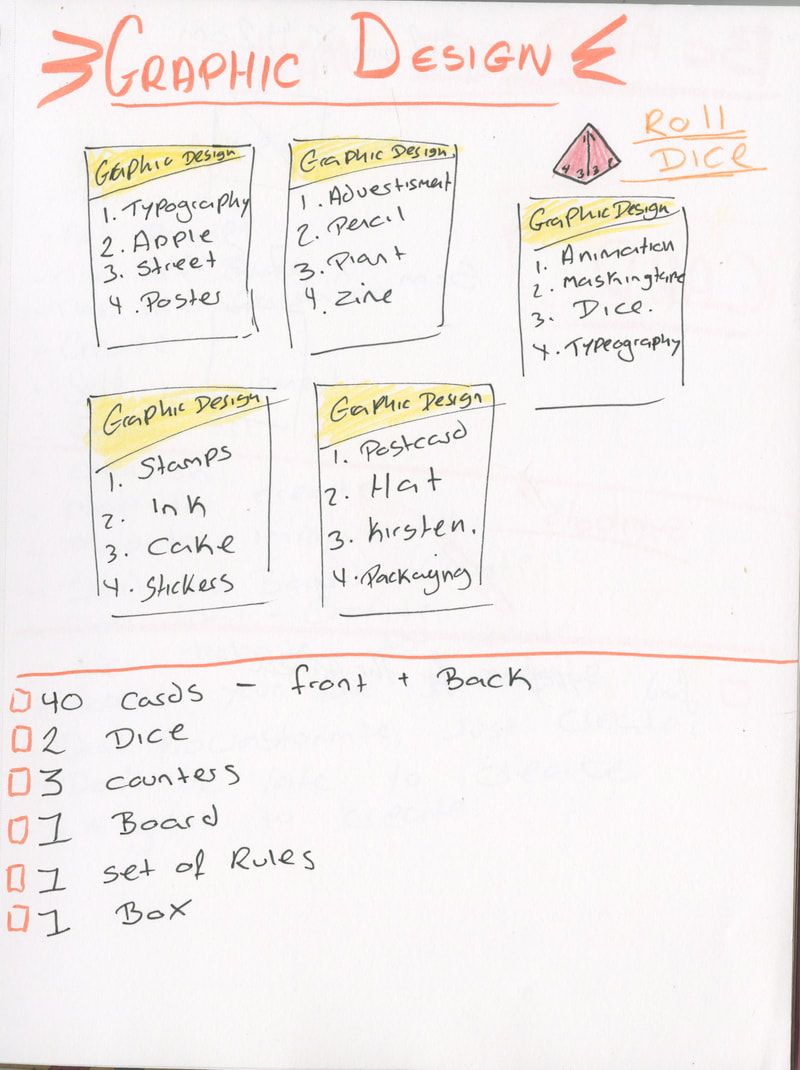 GRAPHIC DESIGN
Roll
DICE
Graphic Design
1. Typography
2. Apple
3. Street
4. Poster
Graphic Design
1. Advestisment
2. Pencil
3. Plant
4. Zine
Graphic Design
1. Animation
2.
3. Dice.
4. Typeography
Graphic Design
1. Stamps
2. Ink
3. Cake
4. Stickers
Graphic Design
1. Postcard
2. Hat
3. Kirsten.
4. Packaging
40 cards - front + Back
2 Dice
3 counters
1 Board
1 set of Rules
1 Box